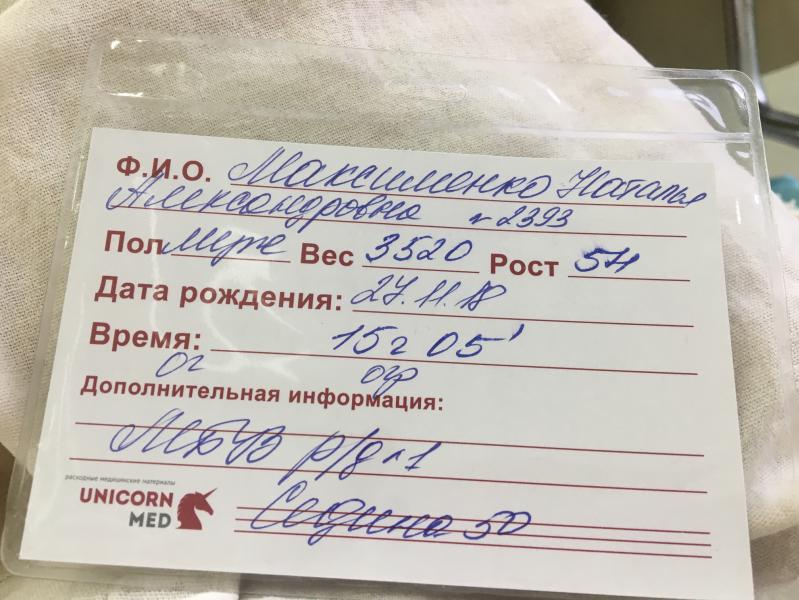 Ф.И.О. Максименко Наталья
Александровна № 2393
Пол муж Вес 3520 Рост 54
Дата рождения: 27.11.18
Время: 15 г 05'
ог
Дополнительная информация:
МБУЗ р/д №1
расходные медицинские материалы
UNICORN
MED
Седина 50